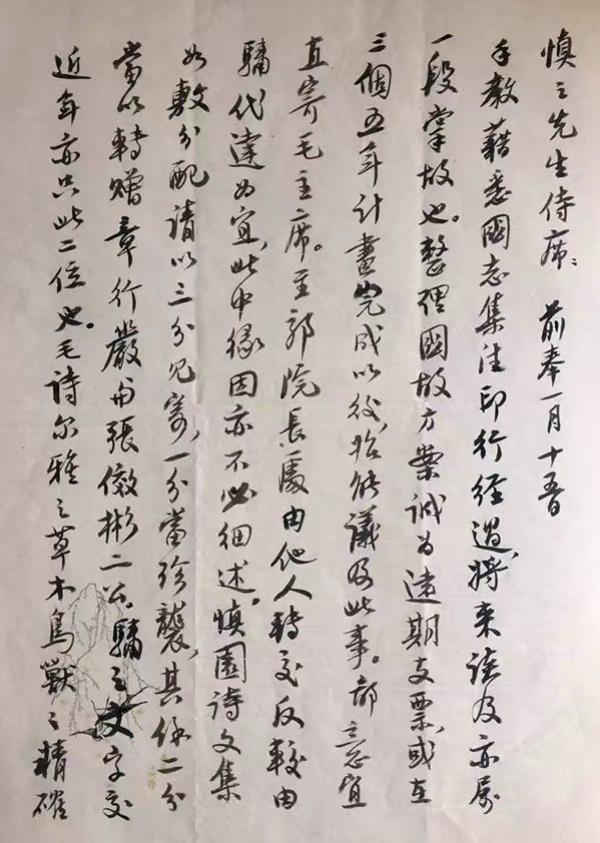 慎之先生侍席：前奉一月十五日
手教藉悉國志集注印行經過，將來談及亦屬
一段掌故也。整理國故方案誠為遠期支票，或在
三個五年計畫完成以後，始能議及此事。鄙意宜
直寄毛主席。至郭院長處由他人轉交反較由
驌代達為宜，此中緣因亦不必細述。慎園詩文集
如敷分配請以三分見寄，一分當珍襲，其餘二分
當以轉贈章行嚴與張傚彬二公。驌之文字交
近年亦只此二位也。毛詩尔雅之草木鳥獸之精確